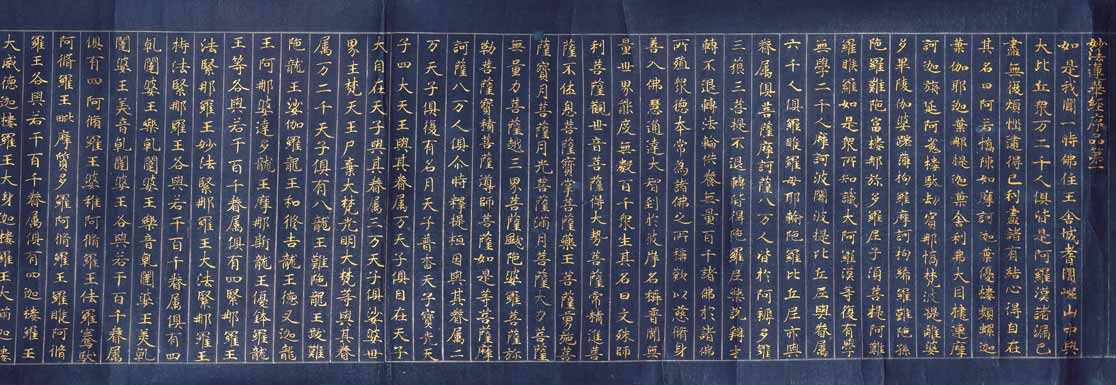 妙法蓮華經序品第一
如是我聞一時佛住王舍城耆闍崛山中與
大比丘衆万二千人俱皆是阿羅漢諸漏已
盡無復煩惱逮得己利盡諸有結心得自在
其名曰阿若憍陳如摩訶迦葉優樓頻螺迦
葉伽耶迦葉那提迦葉舍利弗大目揵連摩
訶迦旃延阿㝹樓馱劫賓那憍梵波提離婆
多畢陵伽婆蹉薄拘羅摩訶拘絺羅難陀孫
陀羅難陀富樓那弥多羅尼子湏菩提阿難
羅睺羅如是衆所知識大阿羅漢等復有學
無學二千人摩訶波闍波提比丘尼與眷属
六千人俱羅睺羅母耶輸陀羅比丘尼亦與
眷属俱菩薩摩訶薩八万人皆於阿耨多羅
三藐三菩提不退轉皆得陀羅尼樂說辯才
轉不退轉法輪供養無量百千諸佛於諸佛
所殖衆德本常為諸佛之所稱歎以慈脩身
善入佛慧通達大智到於彼岸名稱普聞無
量世界能度無數百千衆生其名曰文殊師
利菩薩觀世音菩薩得大勢菩薩常精進菩
薩不休息菩薩寶掌菩薩藥王菩薩勇施菩
薩寶月菩薩月光菩薩滿月菩薩大力菩薩
無量力菩薩越三界菩薩颰陀婆羅菩薩弥
勒菩薩寶積菩薩導師菩薩如是等菩薩摩
訶薩八万人俱尒時釋提桓因與其眷属二
万天子俱復有名月天子普香天子寶光天
子四大天王與其眷属万天子俱自在天子
大自在天子與其眷属三万天子俱娑婆世
界主梵天王尸棄大梵光明大梵等與其眷
属万二千天子俱有八龍王難陀龍王跋難
陀龍王娑伽羅龍王和脩吉龍王德叉迦龍
王阿那婆達多龍王摩那斯龍王優鉢羅龍
王等各與若干百千眷属俱有四緊那羅王
法緊那羅王妙法緊那羅王大法緊那羅王
持法緊那羅王各與若干百千眷属俱有四
乹闥婆王樂乹闥婆王樂音乹闥婆王美乹
闥婆王美音乹闥婆王各與若干百千眷属
俱有四阿脩羅王婆稚阿脩羅王佉羅騫馱
阿脩羅王毗摩質多羅阿脩羅王羅睺阿脩
羅王各與若干百千眷属俱有四迦樓羅王
大威德迦樓羅王大身迦樓羅王大滿迦樓